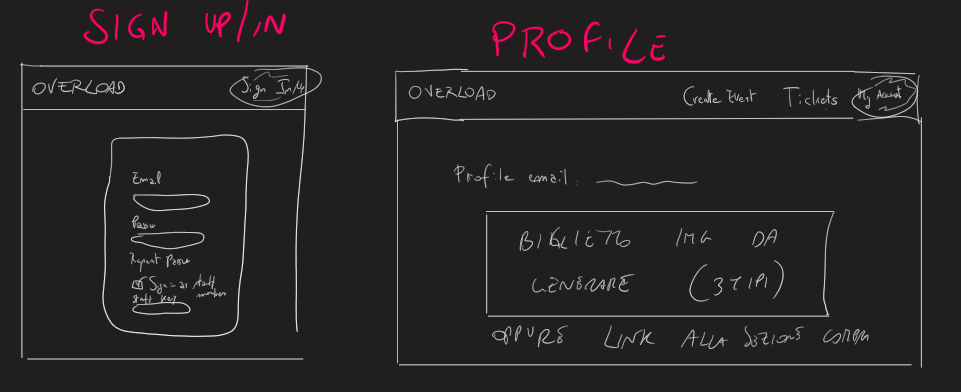 SIGN UP/IN
OVERLOAD
Sign In/Up
Email
Passw
Repeat Passw
Sign as staff member
staff key
PROFILE
OVERLOAD
Create Event Tickets My Account
Profile email:
BIGLIETTO IMG DA
GENERARE (3 TIPI)
OPPURE LINK ALLA SEZIONE